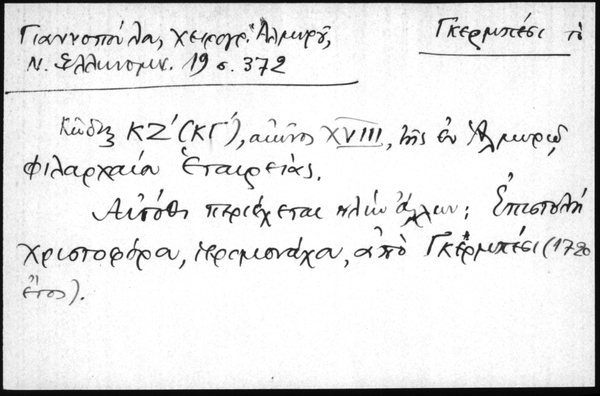 Γιαννοπούλου, Χειρόγρ. Ἁλμυροῦ,
Ν. Ἑλληνομν. 19 σ. 372
Γκερμπέσι τὸ
Κῶδιξ ΚΖ΄ (ΚΓ΄), αἰῶνος XVIII, τῆς ἐν Ἁλμυρῷ
Φιλαρχαίου Ἑταιρείας.
Αὐτόθι περιέχεται πλὴν ἄλλων: Ἐπιστολὴ
Χριστοφόρου, ἱερομονάχου, ἀπὸ Γκέρμπέσι (1720
ἔτος).